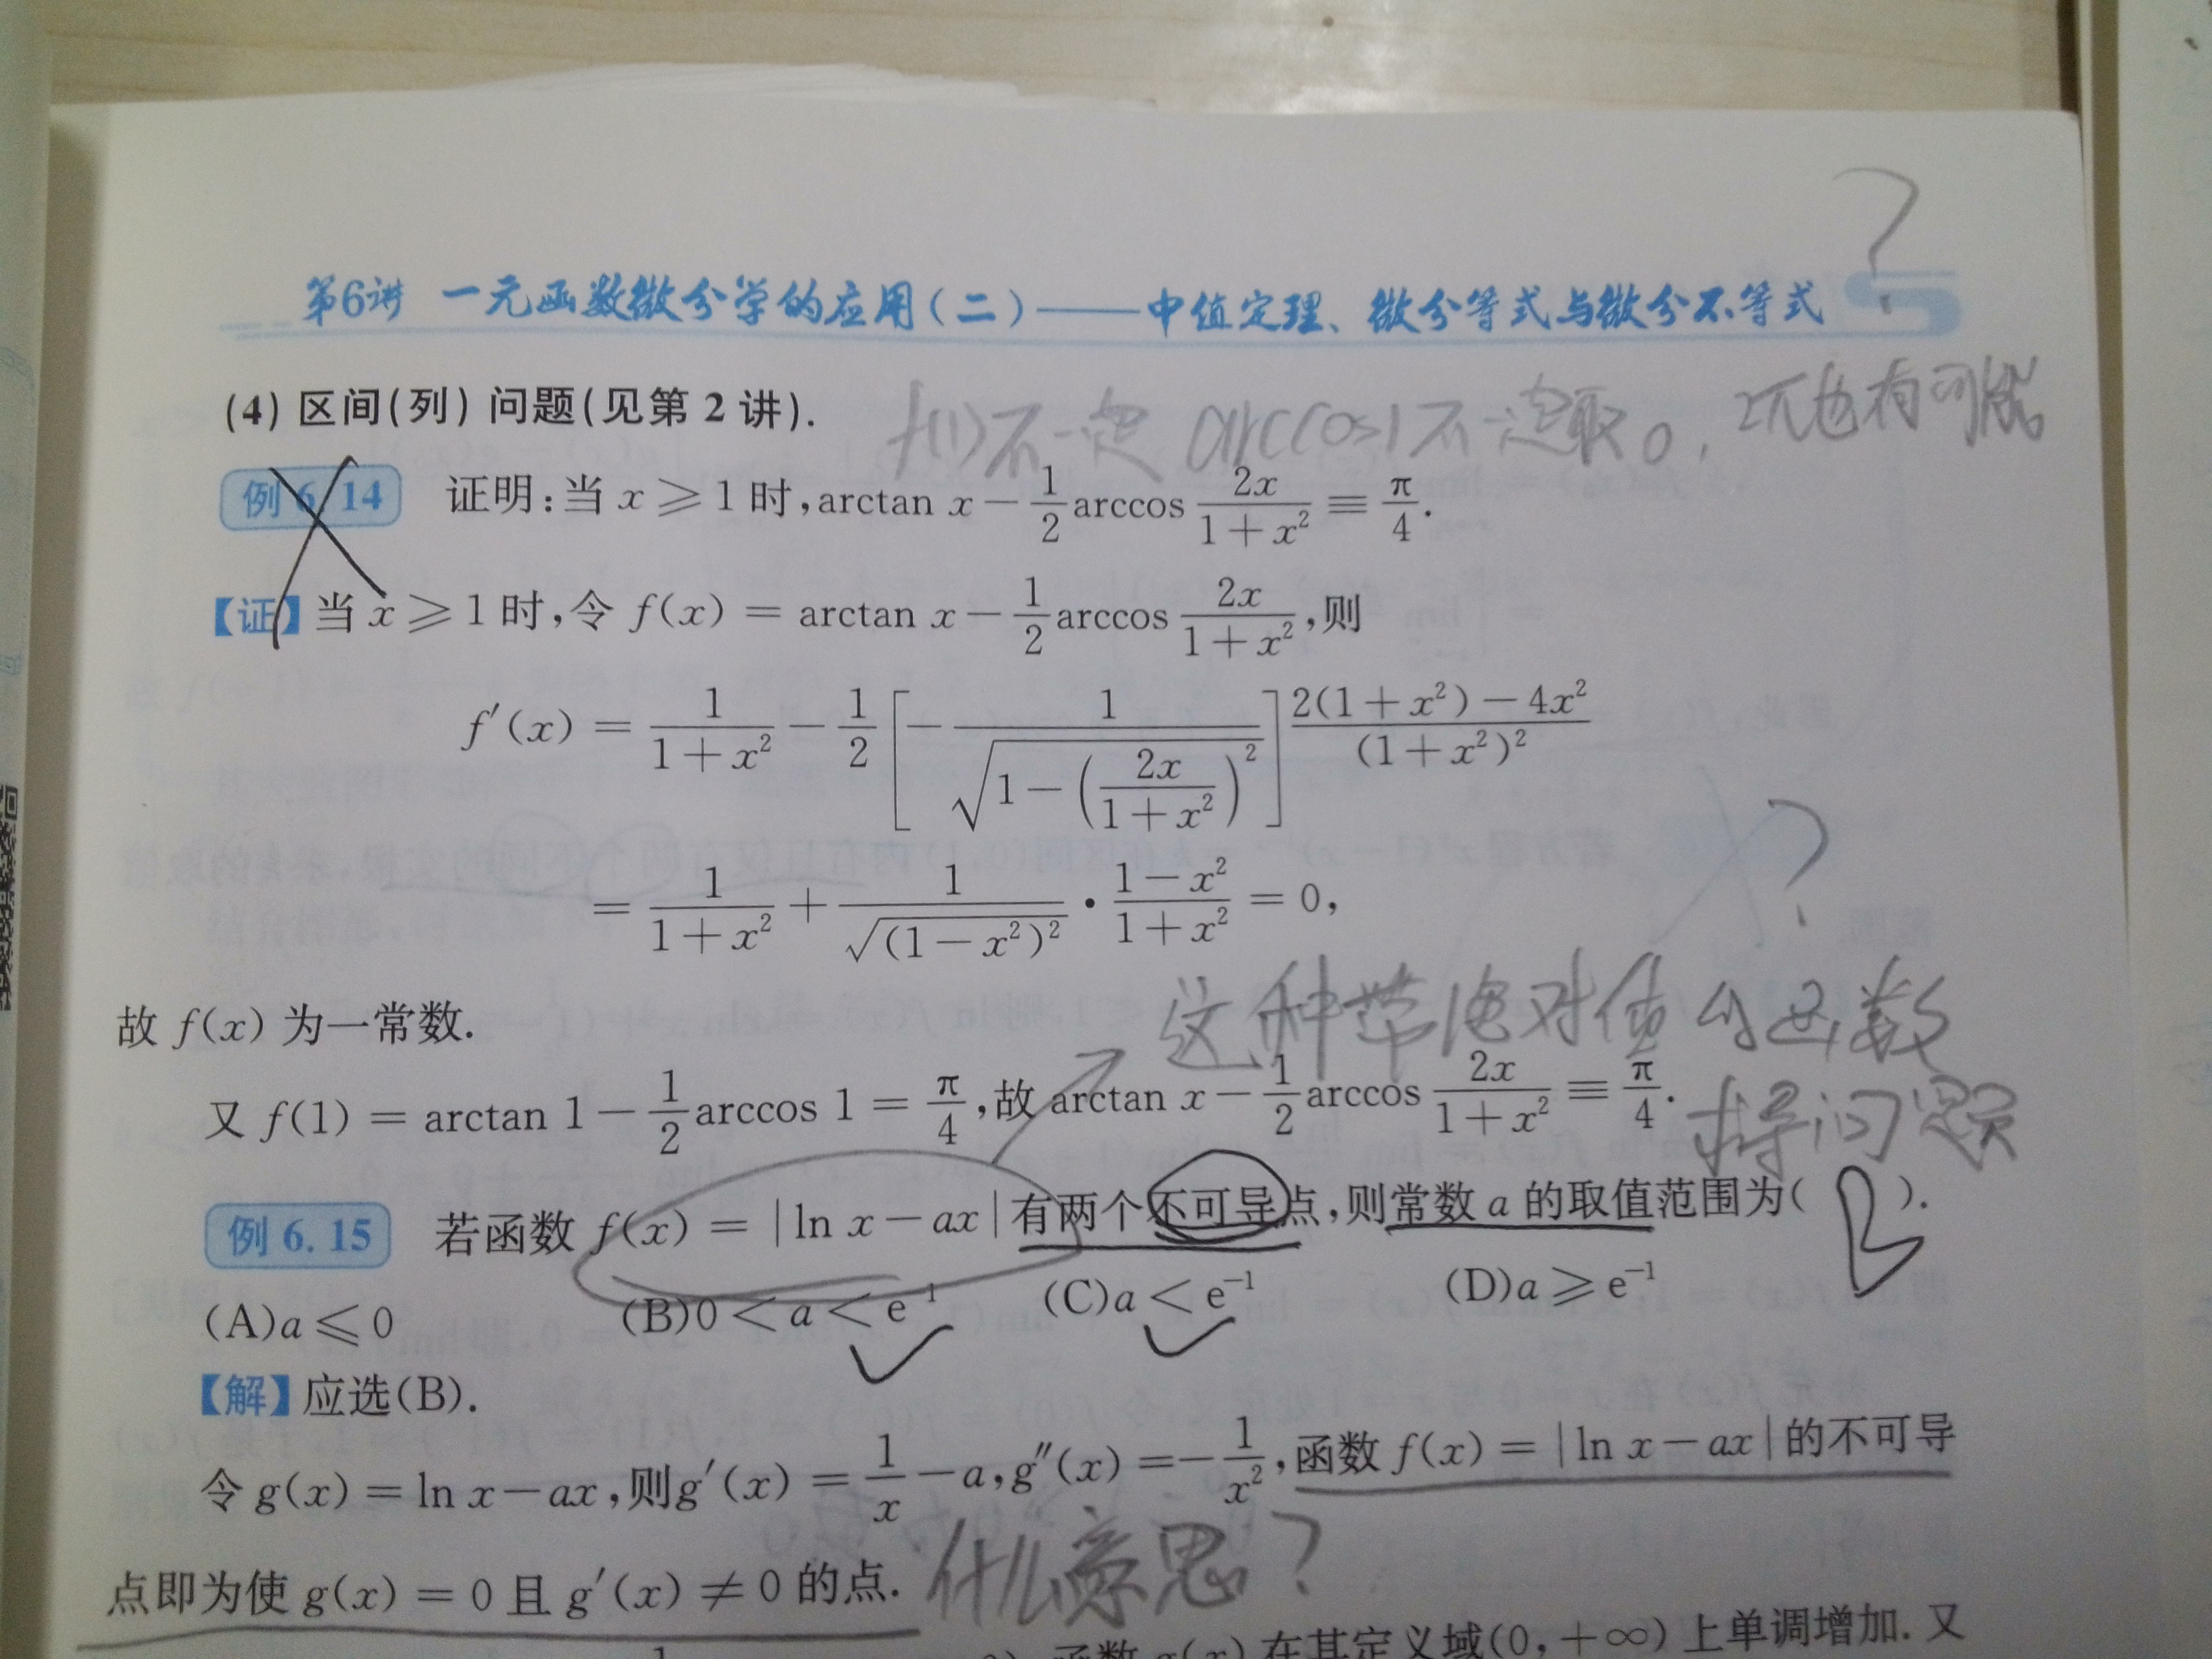 ?
第6讲 一元函数微分学的应用(二)——中值定理、微分等式与微分不等式
(4) 区间(列) 问题(见第 2 讲).
f(1)不一定 arccos1不一定取0, 2π也有可能
例 6.14 证明:当 x ≥ 1 时,arctan x − 1/2 arccos 2x/(1+x²) ≡ π/4.
【证】当 x ≥ 1 时,令 f(x) = arctan x − 1/2 arccos 2x/(1+x²),则
f′(x) = 1/(1+x²) − 1/2 [−1/√(1−(2x/(1+x²))²)] (2(1+x²)−4x²)/(1+x²)²
= 1/(1+x²) + 1/√((1−x²)²) · (1−x²)/(1+x²) = 0,
?
故 f(x) 为一常数.
这种带绝对值的函数
求导问题
又 f(1) = arctan 1 − 1/2 arccos 1 = π/4,故 arctan x − 1/2 arccos 2x/(1+x²) ≡ π/4.
例 6.15 若函数 f(x) = |ln x − ax| 有两个不可导点,则常数 a 的取值范围为( ).
(A)a ≤ 0 (B)0 < a < e⁻¹ (C)a < e⁻¹ (D)a ≥ e⁻¹
【解】应选(B).
令 g(x) = ln x − ax,则g′(x) = 1/x − a,g″(x) = −1/x²,函数 f(x) = |ln x − ax| 的不可导
点即为使 g(x) = 0 且 g′(x) ≠ 0 的点.
什么意思?
在其定义域(0,+∞) 上单调增加. 又